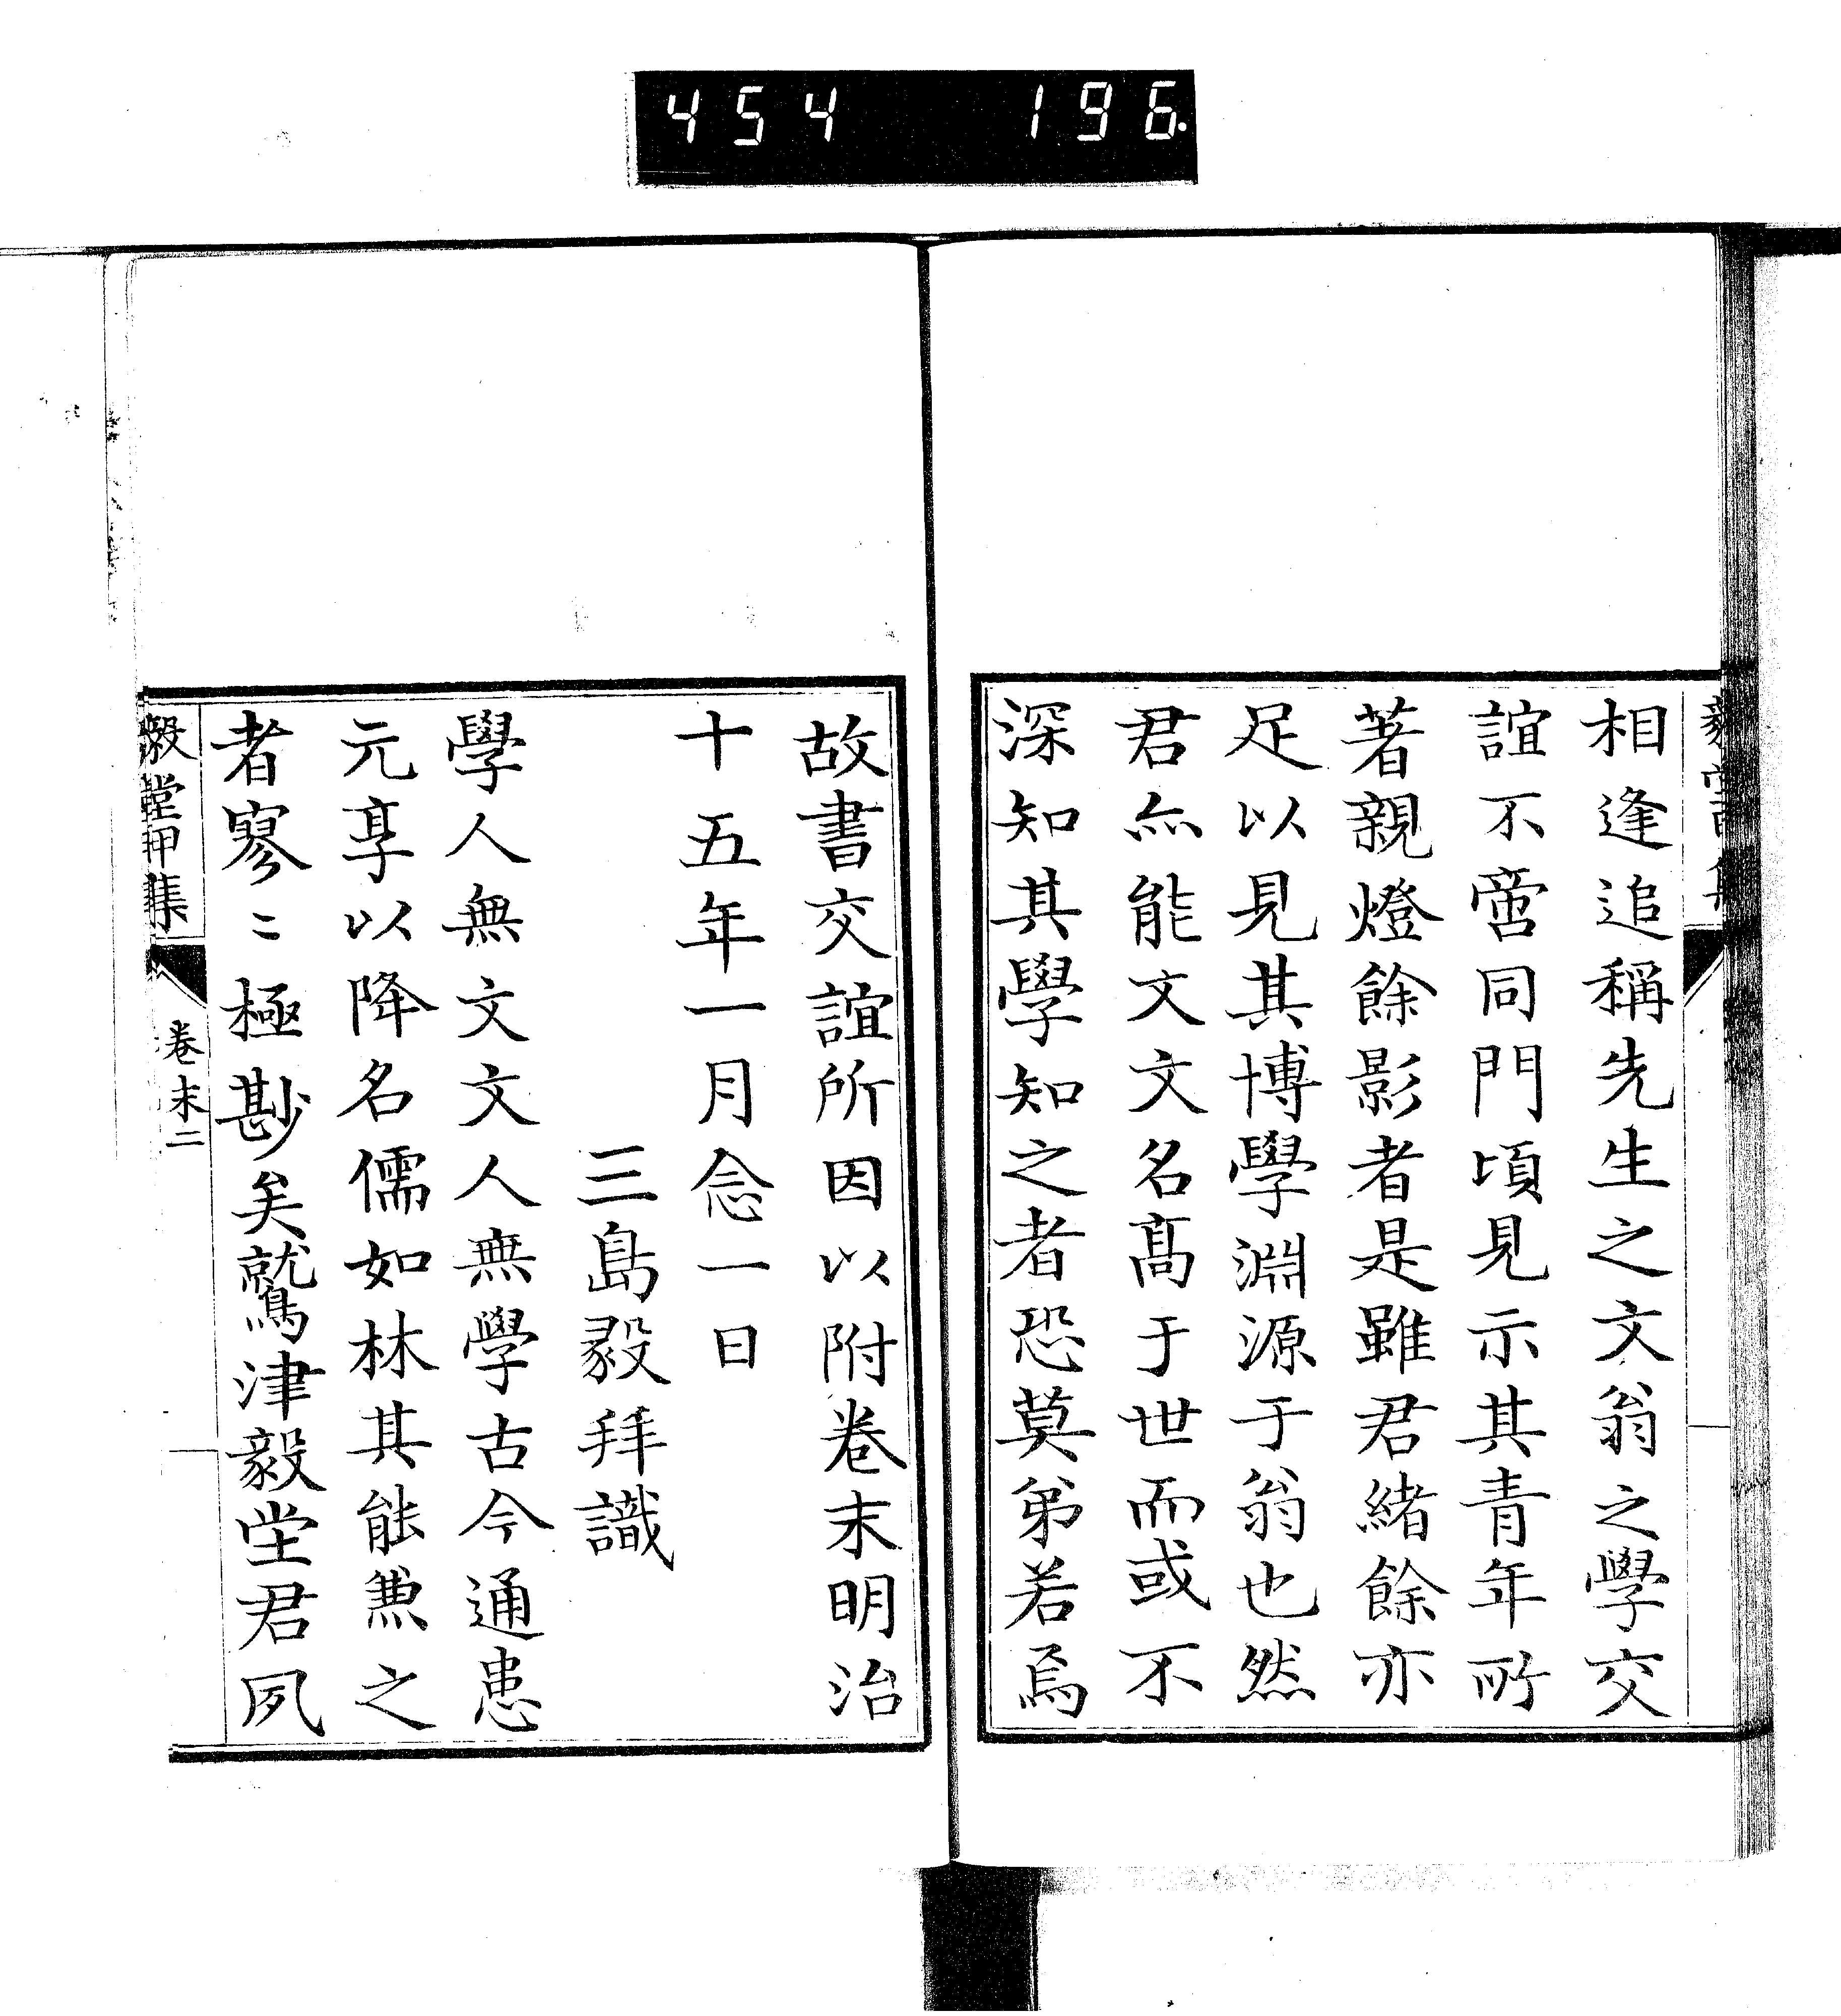 454 196.
相逢追稱先生之文翁之學交
誼不啻同門頃見示其青年所
著親燈餘影者是雖君緒餘亦
足以見其博學淵源于翁也然
君亦能文文名髙于世而或不
深知其學知之者恐莫弟若焉
故書交誼所因以附卷末明治
十五年一月念一日
三島毅拜識
學人無文文人無學古今通患
元享以降名儒如林其能兼之
者寥〻極尠矣鷲津毅堂君夙
毅堂甲集
卷末
二